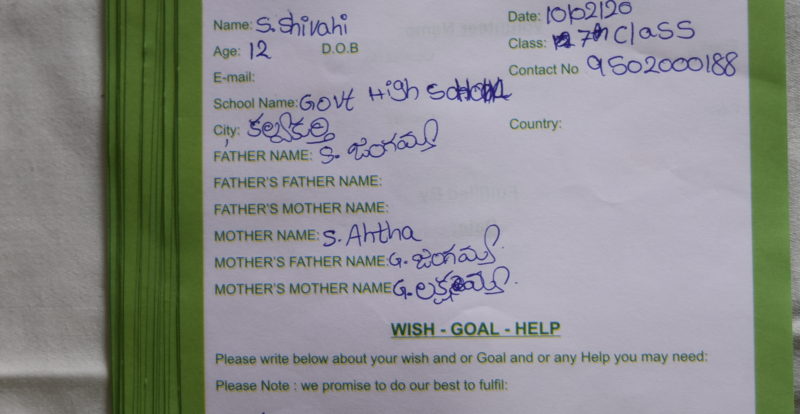 Name: S. Shivahi Date: 10/02/20
Age: 12 D.O.B Class: 7th Class
E-mail: Contact No 9502000188
School Name: Govt High School
City: కల్వకుర్తి Country:
FATHER NAME: S. జంగయ్య
FATHER'S FATHER NAME:
FATHER'S MOTHER NAME:
MOTHER NAME: S. Ahtha
MOTHER'S FATHER NAME: G. జంగయ్య.
MOTHER'S MOTHER NAME G. లక్ష్మమ్మ.
WISH - GOAL - HELP
Please write below about your wish and or Goal and or any Help you may need:
Please Note : we promise to do our best to fulfil: